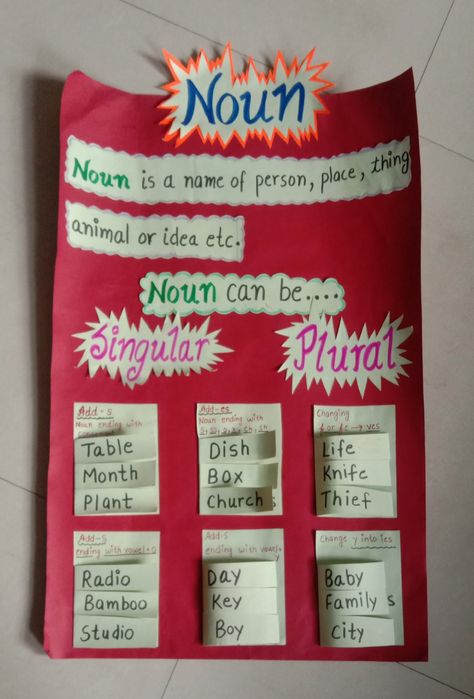 Noun
Noun is a name of person, place, thing
animal or idea etc.
Noun can be....
Singular
Plural
Add-s
Noun ending with
Table
Month
Plant
Add-es
Noun ending with
s, ss, z, x, ch, sh
Dish
Box
Church s
Changing
f or fe → ves
Life
Knife
Thief
Add-s
ending with vowel+o
Radio
Bamboo
Studio
Add-s
ending with vowel+
y
Day
Key
Boy
Change y into ies
Baby
Family s
City